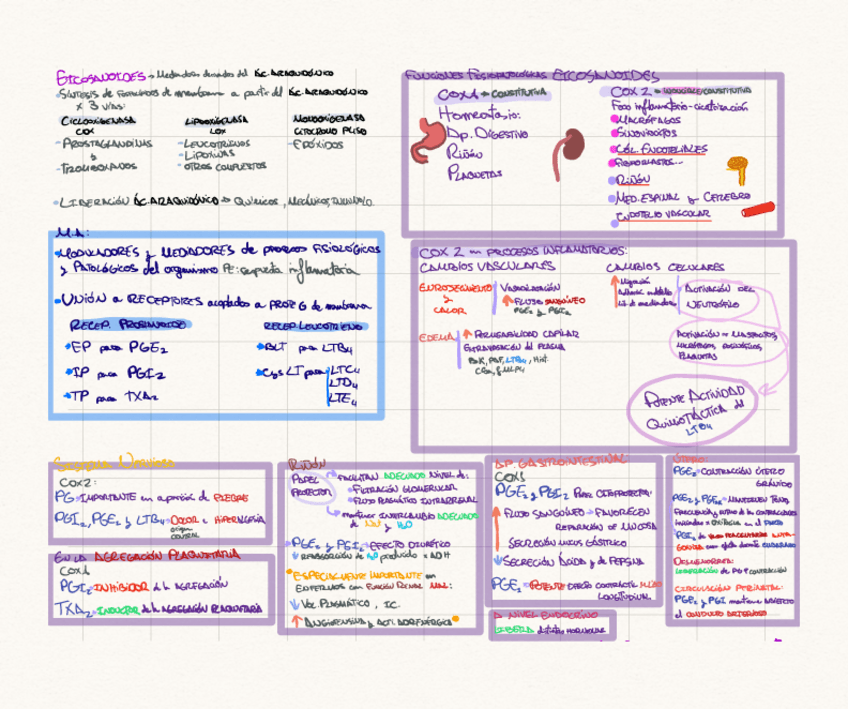 EICOSANOIDES → Mediadores derivados del ÁC. ARAQUIDÓNICO
Síntesis de fosfolípidos de membrana a partir del ÁC. ARAQUIDÓNICO
x 3 VÍAS:
CICLOOXIGENASA
COX
- PROSTAGLANDINAS
y
- TROMBOXANOS
LIPOOXIGENASA
LOX
- LEUCOTRIENOS
- LIPOXINAS
- OTROS COMPUESTOS
MONOOXIGENASA
CITOCROMO P450
- EPÓXIDOS
- LIBERACIÓN ÁC. ARAQUIDÓNICO → QUÍMICOS, MECÁNICOS,
M.A:
MODULADORES y MEDIADORES de procesos FISIOLÓGICOS
y PATOLÓGICOS del organismo PE: respuesta inflamatoria
UNIÓN a RECEPTORES acoplados a PROT G de membrana
RECEP. PROSTANOIDE
EP para PGE2
IP para PGI2
TP para TXA2
RECEP. LEUCOTRIENO
BLT para LTB4
CysLT para LTC4
LTD4
LTE4
FUNCIONES FISIOPATOLÓGICAS EICOSANOIDES
COX1 → CONSTITUTIVA
Homeostasia:
Ap. DIGESTIVO
RIÑÓN
PLAQUETAS
COX 2 → INDUCIBLE/CONSTITUTIVA
Foco inflamatorio-cicatrización
MACRÓFAGOS
SINOVIOCITOS
CÉL. ENDOTELIALES
FIBROBLASTOS...
RIÑÓN
MED. ESPINAL y CEREBRO
ENDOTELIO VASCULAR
COX 2 en PROCESOS INFLAMATORIOS:
CAMBIOS VASCULARES
ENROJECIMIENTO
y
CALOR
VASODILATACIÓN
↑ FLUJO SANGUÍNEO
PGE2 y PGI2
EDEMA
↑ PERMEABILIDAD CAPILAR
EXTRAVASACIÓN del PLASMA
BdK, PAF, LTB4, Hist.
C5a, fMLP4
CAMBIOS CELULARES
↑ Migración
Lib de mediadores
ACTIVACIÓN DEL
NEUTRÓFILO
ACTIVACIÓN → MASTOCITOS,
MACRÓFAGOS, EOSINÓFILOS,
PLAQUETAS
POTENTE ACTIVIDAD
QUIMIOTÁCTICA del
LTB4
SISTEMA NERVIOSO
COX2:
PG → IMPORTANTE en aparición de FIEBRE
PGI2, PGE2 y LTB4 → DOLOR e HIPERALGESIA
origen
CENTRAL
EN LA AGREGACIÓN PLAQUETARIA
COX1
PGI2 → INHIBIDOR de la AGREGACIÓN
TXA2 → INDUCTOR de la AGREGACIÓN PLAQUETARIA
RIÑÓN
PAPEL
PROTECTOR
FACILITAN ADECUADO NIVEL de:
FILTRACIÓN GLOMERULAR
FLUJO PLASMÁTICO INTRARRENAL
mantener INTERCAMBIO ADECUADO
de Na y H2O
PGE2 y PGI2 → EFECTO DIURÉTICO
↓ REABSORCIÓN de H2O producido x ADH
ESPECIALMENTE IMPORTANTE en
ENFERMOS con FUNCIÓN RENAL MAL:
↓ VOL. PLASMÁTICO, IC.
↑ ANGIOTENSINA y ACTI. ADRENÉRGICA
AP. GASTROINTESTINAL
COX1
PGE2 y PGI2 PAPEL CITOPROTECTOR:
↑ FLUJO SANGUÍNEO → FAVORECEN
REPARACIÓN DE MUCOSA
SECRECIÓN MUCUS GÁSTRICO
↓ SECRECIÓN ÁCIDA y de PEPSINA
PGE2 → POTENTE EFECTO CONTRÁCTIL MÚSCULO
LONGITUDINAL
A NIVEL ENDOCRINO
LIBERA distintas HORMONAS
ÚTERO
PGE2 → CONTRACCIÓN ÚTERO
GRÁVIDO
PGE2 y PGF2α → MANTIENEN TONO,
FRECUENCIA y ritmo de las contracciones
DISMENORREA:
LIBERACIÓN de PG → CONTRACCIÓN
CIRCULACIÓN PERINATAL:
PGE2 y PGI mantiene ABIERTO
el CONDUCTO ARTERIOSO